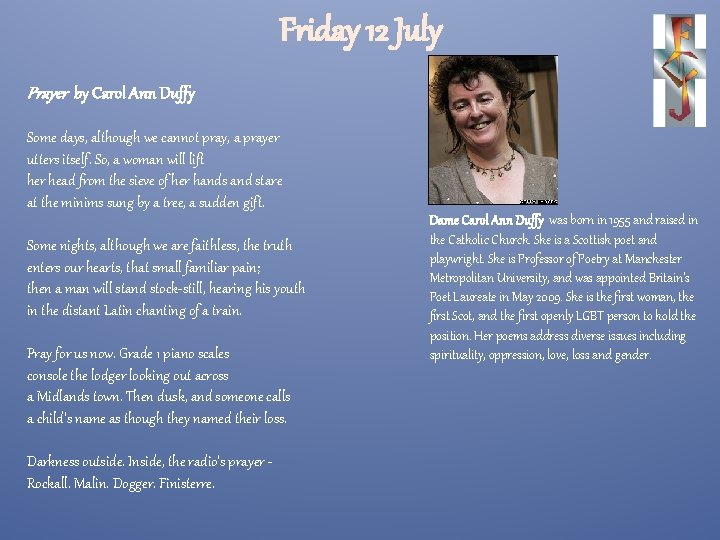 Friday 12 July
Prayer by Carol Ann Duffy
Some days, although we cannot pray, a prayer
utters itself. So, a woman will lift
her head from the sieve of her hands and stare
at the minims sung by a tree, a sudden gift.
Some nights, although we are faithless, the truth
enters our hearts, that small familiar pain;
then a man will stand stock-still, hearing his youth
in the distant Latin chanting of a train.
Pray for us now. Grade 1 piano scales
console the lodger looking out across
a Midlands town. Then dusk, and someone calls
a child's name as though they named their loss.
Darkness outside. Inside, the radio's prayer -
Rockall. Malin. Dogger. Finisterre.
Dame Carol Ann Duffy was born in 1955 and raised in
the Catholic Church. She is a Scottish poet and
playwright. She is Professor of Poetry at Manchester
Metropolitan University, and was appointed Britain's
Poet Laureate in May 2009. She is the first woman, the
first Scot, and the first openly LGBT person to hold the
position. Her poems address diverse issues including
spirituality, oppression, love, loss and gender.